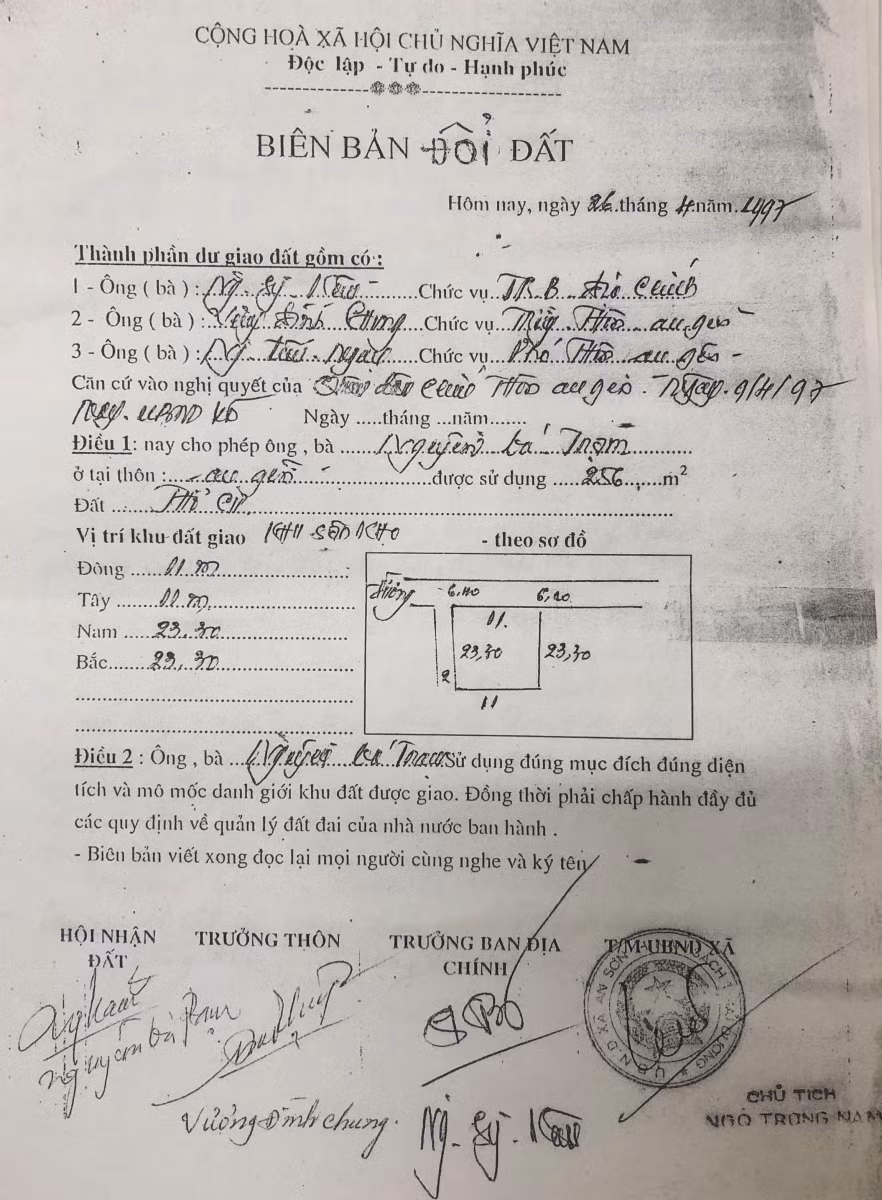 CỘNG HOÀ XÃ HỘI CHỦ NGHĨA VIỆT NAM
Độc lập - Tự do - Hạnh phúc
BIÊN BẢN ĐỔI ĐẤT
Hôm nay, ngày 26 tháng 4 năm 1997
Thành phần dư giao đất gồm có :
1 - Ông ( bà ) : Ng. Sỹ Chức vụ T.B Địa Chính
2 - Ông ( bà ) : Vương Đình Chung Chức vụ Thôn
3 - Ông ( bà ) : Chức vụ Phó Thôn
Căn cứ vào nghị quyết của ngày 9/4/97
UBND Ngày .....tháng ...năm.......
Điều 1: nay cho phép ông , bà Nguyễn bá Trạm
ở tại thôn : được sử dụng 256 m²
Đất Thổ cư
Vị trí khu đất giao KHU SÂN KHO - theo sơ đồ
Đông 11 m
Tây 11 m
Nam 23.30
Bắc 23.30
đường 6,40 6,20
11.
23,30 23,30
2
11
Điều 2 : Ông , bà Nguyễn bá Trạm Sử dụng đúng mục đích đúng diện
tích và mô mốc danh giới khu đất được giao. Đồng thời phải chấp hành đầy đủ
các quy định về quản lý đất đai của nhà nước ban hành .
- Biên bản viết xong đọc lại mọi người cùng nghe và ký tên
HỘI NHẬN TRƯỞNG THÔN TRƯỞNG BAN ĐỊA T/M UBND XÃ
ĐẤT CHÍNH
U.B.N.D XÃ AN SƠN
CHỦ TỊCH
NGÔ TRỌNG NAM
Vương Đình Chung. Ng. Sỹ